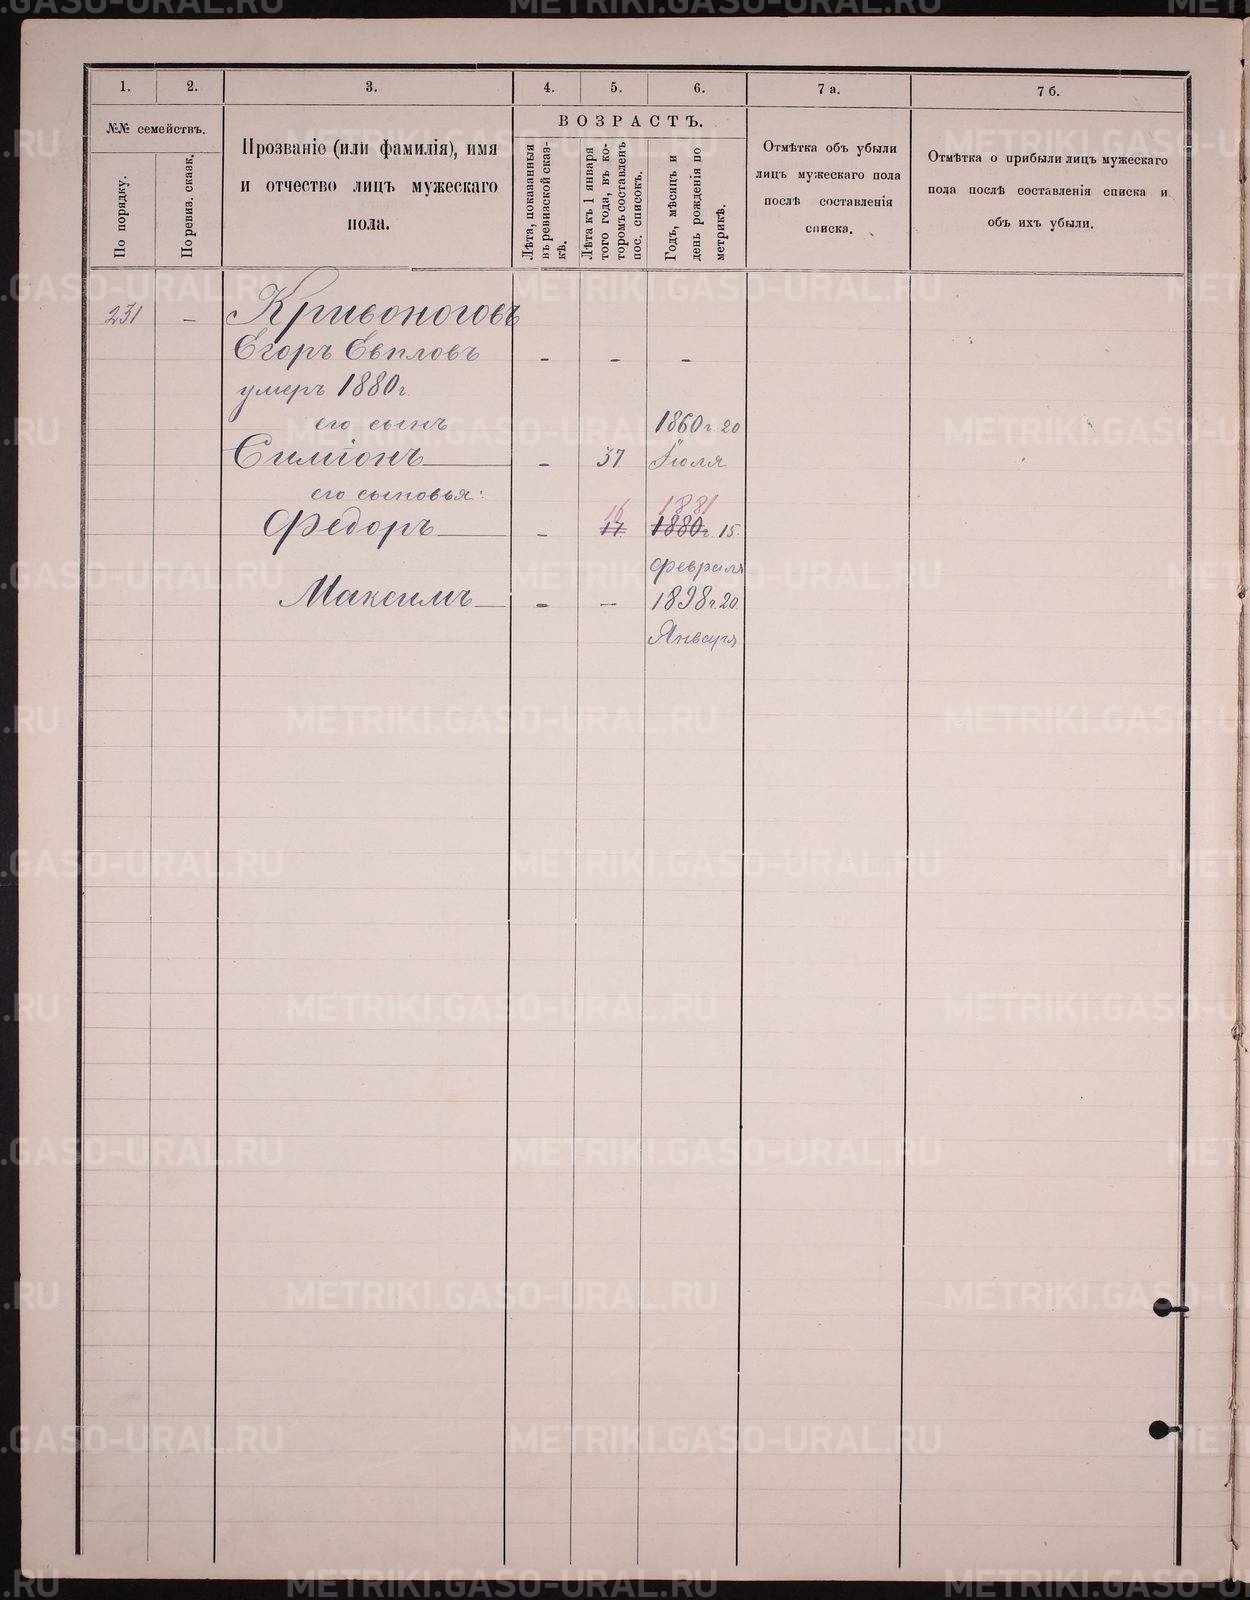 1.
2.
3.
4.
5.
6.
7 а.
7 б.
№№ семействъ.
По порядку.
По ревиз. сказк.
Прозваніе (или фамилія), имя
и отчество лицъ мужескаго
пола.
ВОЗРАСТЪ.
Лѣта, показанныя
въ ревизской сказ-
кѣ.
Лѣта къ 1 января
того года, въ ко-
торомъ составленъ
пос. списокъ.
Годъ, мѣсяцъ и
день рожденія по
метрикѣ.
Отмѣтка объ убыли
лицъ мужескаго пола
послѣ составленія
списка.
Отмѣтка о прибыли лицъ мужескаго
пола послѣ составленія списка и
объ ихъ убыли.
231 – Кривоноговъ
Егоръ Евпловъ – – –
умеръ 1880 г.
его сынъ 1860 г. 20
Симіонъ – 37 Іюля
его сыновья:
16 1881
Федоръ – 17 1880 г. 15
февраля
Максимъ – – 1898 г. 20
Января
METRIKI.GASO-URAL.RU